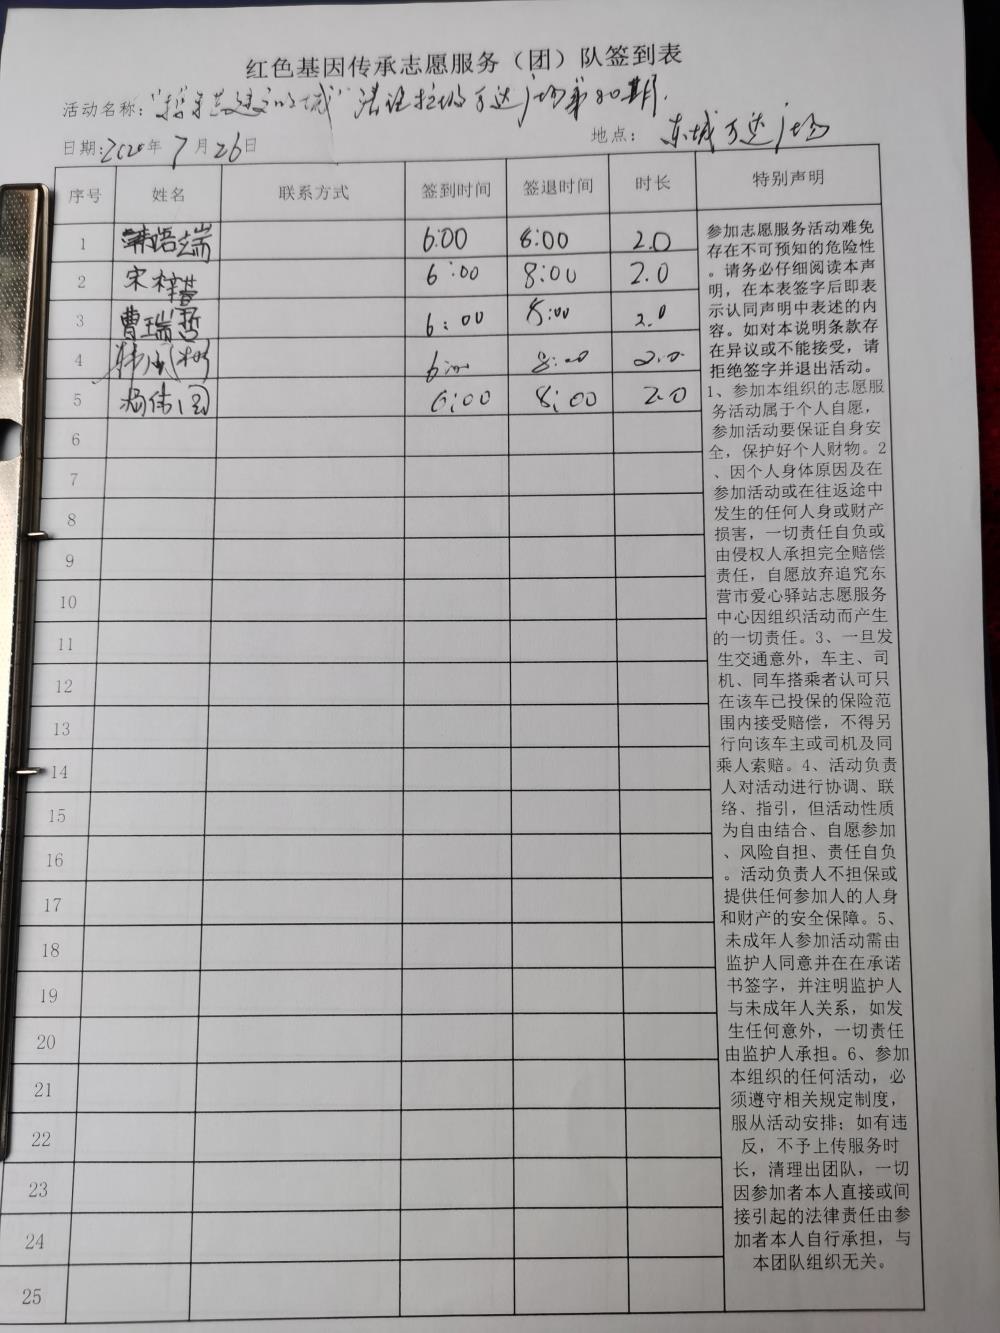 红色基因传承志愿服务（团）队签到表
活动名称：
日期：2020年7月26日 地点：东城万达广场
序号 姓名 联系方式 签到时间 签退时间 时长 特别声明
1 韩语端 6:00 8:00 2.0
2 宋梓 6:00 8:00 2.0
3 曹瑞哲 6:00 8:00 2.0
4 6:00 8:00 2.0
5 杨伟国 6:00 8:00 2.0
6
7
8
9
10
11
12
13
14
15
16
17
18
19
20
21
22
23
24
25
参加志愿服务活动难免
存在不可预知的危险性
。请务必仔细阅读本声
明，在本表签字后即表
示认同声明中表述的内
容。如对本说明条款存
在异议或不能接受，请
拒绝签字并退出活动。
1、参加本组织的志愿服
务活动属于个人自愿，
参加活动要保证自身安
全，保护好个人财物。2
、因个人身体原因及在
参加活动或在往返途中
发生的任何人身或财产
损害，一切责任自负或
由侵权人承担完全赔偿
责任，自愿放弃追究东
营市爱心驿站志愿服务
中心因组织活动而产生
的一切责任。3、一旦发
生交通意外，车主、司
机、同车搭乘者认可只
在该车已投保的保险范
围内接受赔偿，不得另
行向该车主或司机及同
乘人索赔。4、活动负责
人对活动进行协调、联
络、指引，但活动性质
为自由结合、自愿参加
、风险自担、责任自负
。活动负责人不担保或
提供任何参加人的人身
和财产的安全保障。5、
未成年人参加活动需由
监护人同意并在在承诺
书签字，并注明监护人
与未成年人关系，如发
生任何意外，一切责任
由监护人承担。6、参加
本组织的任何活动，必
须遵守相关规定制度，
服从活动安排；如有违
反，不予上传服务时
长，清理出团队，一切
因参加者本人直接或间
接引起的法律责任由参
加者本人自行承担，与
本团队组织无关。